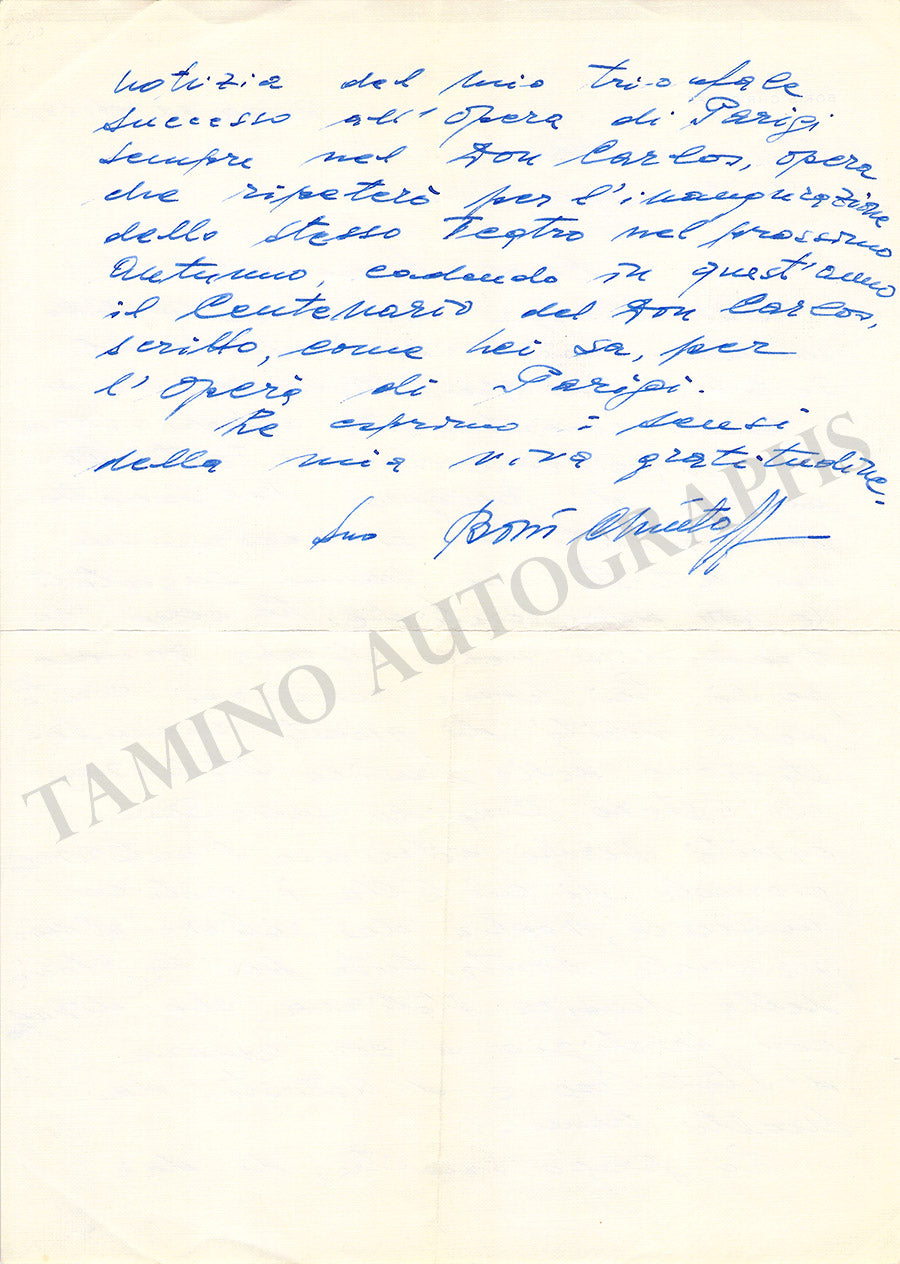 notizia del mio trionfale
successo all'Opera di Parigi
sempre nel Don Carlos, opera
che ripeterò per l'inaugurazione
dello stesso Teatro nel prossimo
Autunno, cadendo in quest'anno
il Centenario del Don Carlos,
scritto, come Lei sa, per
l'Opera di Parigi.
Le esprimo i sensi
della mia viva gratitudine.
Suo Boris Christoff
TAMINO AUTOGRAPHS